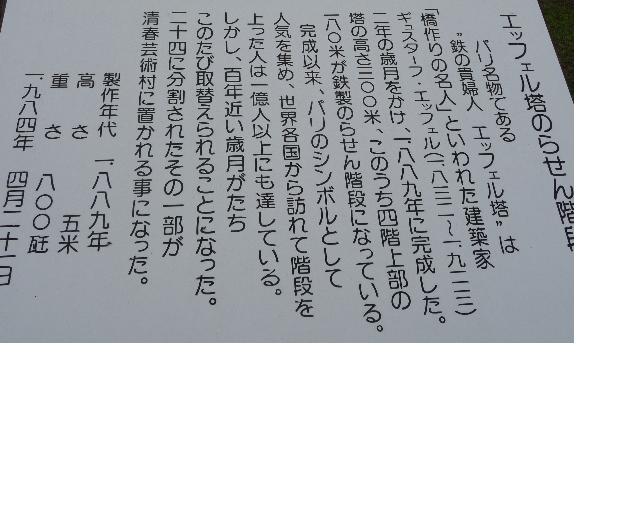 エッフェル塔のらせん階段
パリ名物である
〝鉄の貴婦人　エッフェル塔〟は
「橋作りの名人」といわれた建築家
ギュスターフ・エッフェル(一八三二〜一九二三)
二年の歳月をかけ、一八八九年に完成した。
塔の高さ三〇〇米、このうち四階上部の
一八〇米が鉄製のらせん階段になっている。
完成以来、パリのシンボルとして
人気を集め、世界各国から訪れて階段を
上った人は一億人以上にも達している。
しかし、百年近い歳月がたち
このたび取替えられることになった。
二十四に分割されたその一部が
清春芸術村に置かれる事になった。
製作年代　一八八九年
高さ　五米
重さ　八〇〇瓩
一九八四年　四月二十一日